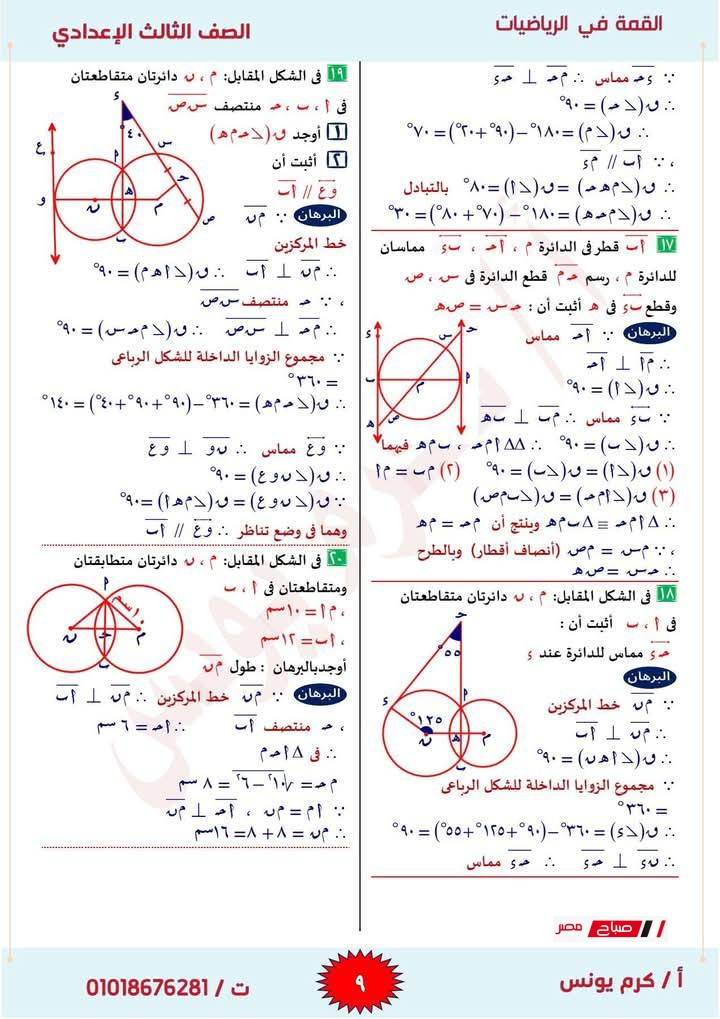 القمة في الرياضيات
الصف الثالث الإعدادي
∵ حـ5 مماس ∴ مـحـ ⊥ حـ5
∴ ق(∠حـ) = ٩٠°
∴ ق(∠م) = ١٨٠° − (٩٠° + ٢٠°) = ٧٠°
، ∵ أب // م5
∴ ق(∠م هـ حـ) = ق(∠أ) = ٨٠° بالتبادل
∴ ق(∠م حـ هـ) = ١٨٠° − (٧٠° + ٨٠°) = ٣٠°
١٧ أب قطر فى الدائرة م ، أحـ ، ب5 مماسان
للدائرة م ، رسم حـم قطع الدائرة فى س ، ص
وقطع ب5 فى هـ أثبت أن : حـس = ص هـ
البرهان ∵ أحـ مماس
∴ م أ ⊥ أحـ
∴ ق(∠أ) = ٩٠°
∵ ب5 مماس ∴ م ب ⊥ ب هـ
∴ ق(∠ب) = ٩٠° ∴ ∆∆ أ م حـ ، ب م هـ فيهما
(١) ق(∠أ) = ق(∠ب) = ٩٠° (٢) م ب = م أ
(٣) ق(∠أ م حـ) = ق(∠ب م ص)
∴ ∆ أ م حـ ≡ ∆ ب م هـ وينتج أن م حـ = م هـ
، ∵ م س = م ص (أنصاف أقطار) وبالطرح
∴ حـ س = ص هـ
١٨ فى الشكل المقابل: م ، ن دائرتان متقاطعتان
فى أ ، ب أثبت أن :
حـ5 مماس للدائرة عند 5
البرهان
∵ م ن خط المركزين
∴ م ن ⊥ أب
∴ ق(∠أ هـ ن) = ٩٠°
∵ مجموع الزوايا الداخلة للشكل الرباعى
= ٣٦٠°
∴ ق(∠5) = ٣٦٠° − (٩٠° + ١٢٥° + ٥٥°) = ٩٠°
∴ ن5 ⊥ حـ5 ∴ حـ5 مماس
١٩ فى الشكل المقابل: م ، ن دائرتان متقاطعتان
فى أ ، ب ، حـ منتصف س ص
١ أوجد ق(∠حـ م هـ)
٢ أثبت أن
وع // أب
البرهان ∵ م ن
خط المركزين
∴ م ن ⊥ أب ∴ ق(∠أ هـ م) = ٩٠°
، ∵ حـ منتصف س ص
∴ م حـ ⊥ س ص ∴ ق(∠م حـ س) = ٩٠°
∵ مجموع الزوايا الداخلة للشكل الرباعى
= ٣٦٠°
∴ ق(∠حـ م هـ) = ٣٦٠° − (٩٠° + ٩٠° + ٤٠°) = ١٤٠°
∵ وع مماس ∴ ن و ⊥ وع
∴ ق(∠ن و ع) = ٩٠°
∵ ق(∠ن و ع) = ق(∠م هـ أ) = ٩٠°
وهما فى وضع تناظر ∴ وع // أب
٢٠ فى الشكل المقابل: م ، ن دائرتان متطابقتان
ومتقاطعتان فى أ ، ب
، م أ = ١٠سم
، أب = ١٢سم
أوجدبالبرهان : طول م ن
البرهان ∵ م ن خط المركزين ∴ م ن ⊥ أب
، حـ منتصف أب ∴ أحـ = ٦ سم
∴ فى ∆ أحـ م
م حـ = √(١٠² − ٦²) = ٨ سم
∵ أ م = م ن ، أحـ ⊥ م ن
∴ م ن = ٨ + ٨ = ١٦سم
صباح مصر
أ / كرم يونس
٩
ت / 01018676281